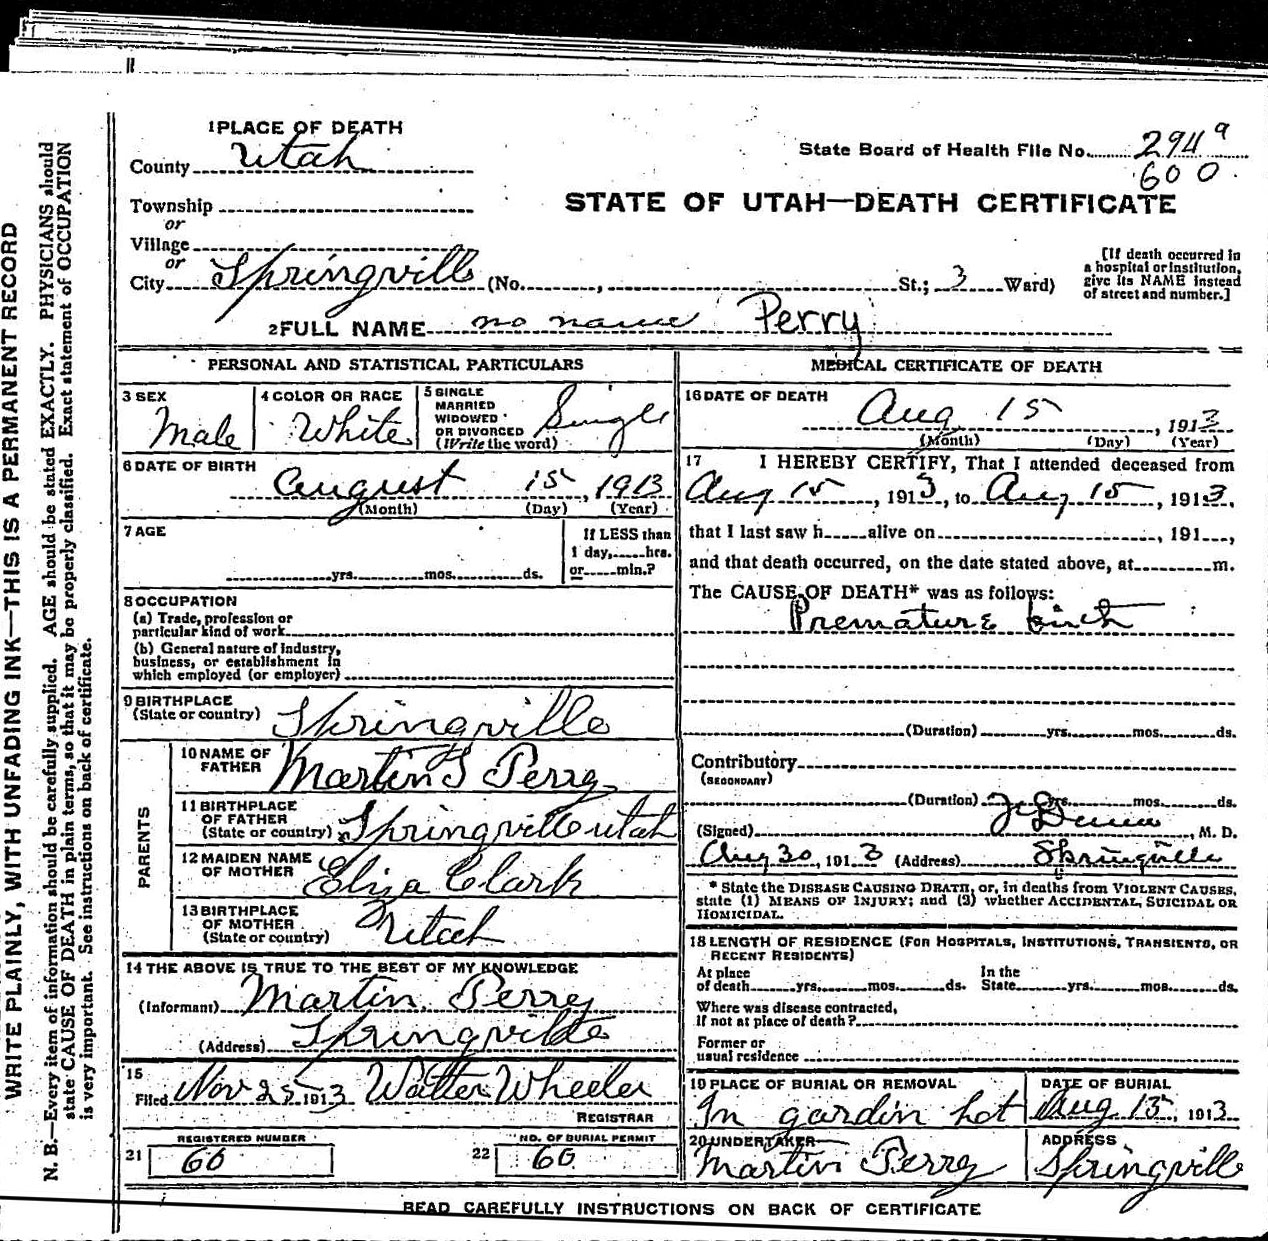 1 PLACE OF DEATH
County Utah
State Board of Health File No. 294 a
600
Township
or
Village
or
City Springville (No. , St.; 3 Ward)
STATE OF UTAH—DEATH CERTIFICATE
[If death occurred in a hospital or institution, give its NAME instead of street and number.]
2 FULL NAME no name Perry
PERSONAL AND STATISTICAL PARTICULARS
3 SEX Male
4 COLOR OR RACE White
5 SINGLE
MARRIED
WIDOWED
OR DIVORCED
(Write the word) Single
6 DATE OF BIRTH
August 15, 1913
(Month) (Day) (Year)
7 AGE
yrs. mos. ds.
If LESS than
1 day, hrs.
or min.?
8 OCCUPATION
(a) Trade, profession or
particular kind of work
(b) General nature of industry,
business, or establishment in
which employed (or employer)
9 BIRTHPLACE
(State or country) Springville
PARENTS
10 NAME OF
FATHER Martin S Perry
11 BIRTHPLACE
OF FATHER
(State or country) Springville utah
12 MAIDEN NAME
OF MOTHER Eliza Clark
13 BIRTHPLACE
OF MOTHER
(State or country) Utah
14 THE ABOVE IS TRUE TO THE BEST OF MY KNOWLEDGE
(Informant) Martin Perry
(Address) Springville
15
Filed Nov 25 1913 Walter Wheeler
REGISTRAR
21 REGISTERED NUMBER
60
22 NO. OF BURIAL PERMIT
60
MEDICAL CERTIFICATE OF DEATH
16 DATE OF DEATH
Aug 15, 1913
(Month) (Day) (Year)
17 I HEREBY CERTIFY, That I attended deceased from
Aug 15, 1913, to Aug 15, 1913,
that I last saw h alive on , 191 ,
and that death occurred, on the date stated above, at m.
The CAUSE OF DEATH* was as follows:
Premature birth
(Duration) yrs. mos. ds.
Contributory
(SECONDARY)
(Duration) yrs. mos. ds.
(Signed) , M. D.
Aug 30, 1913 (Address) Springville
* State the DISEASE CAUSING DEATH, or, in deaths from VIOLENT CAUSES,
state (1) MEANS OF INJURY; and (2) whether ACCIDENTAL, SUICIDAL OR
HOMICIDAL.
18 LENGTH OF RESIDENCE (FOR HOSPITALS, INSTITUTIONS, TRANSIENTS, OR
RECENT RESIDENTS)
At place
of death yrs. mos. ds.
In the
State yrs. mos. ds.
Where was disease contracted,
if not at place of death?
Former or
usual residence
19 PLACE OF BURIAL OR REMOVAL
In gardin lot
DATE OF BURIAL
Aug 15, 1913
20 UNDERTAKER
Martin Perry
ADDRESS
Springville
READ CAREFULLY INSTRUCTIONS ON BACK OF CERTIFICATE
WRITE PLAINLY, WITH UNFADING INK—THIS IS A PERMANENT RECORD
N. B.—Every item of information should be carefully supplied. AGE should be stated EXACTLY. PHYSICIANS should
state CAUSE OF DEATH in plain terms, so that it may be properly classified. Exact statement of OCCUPATION
is very important. See instructions on back of certificate.